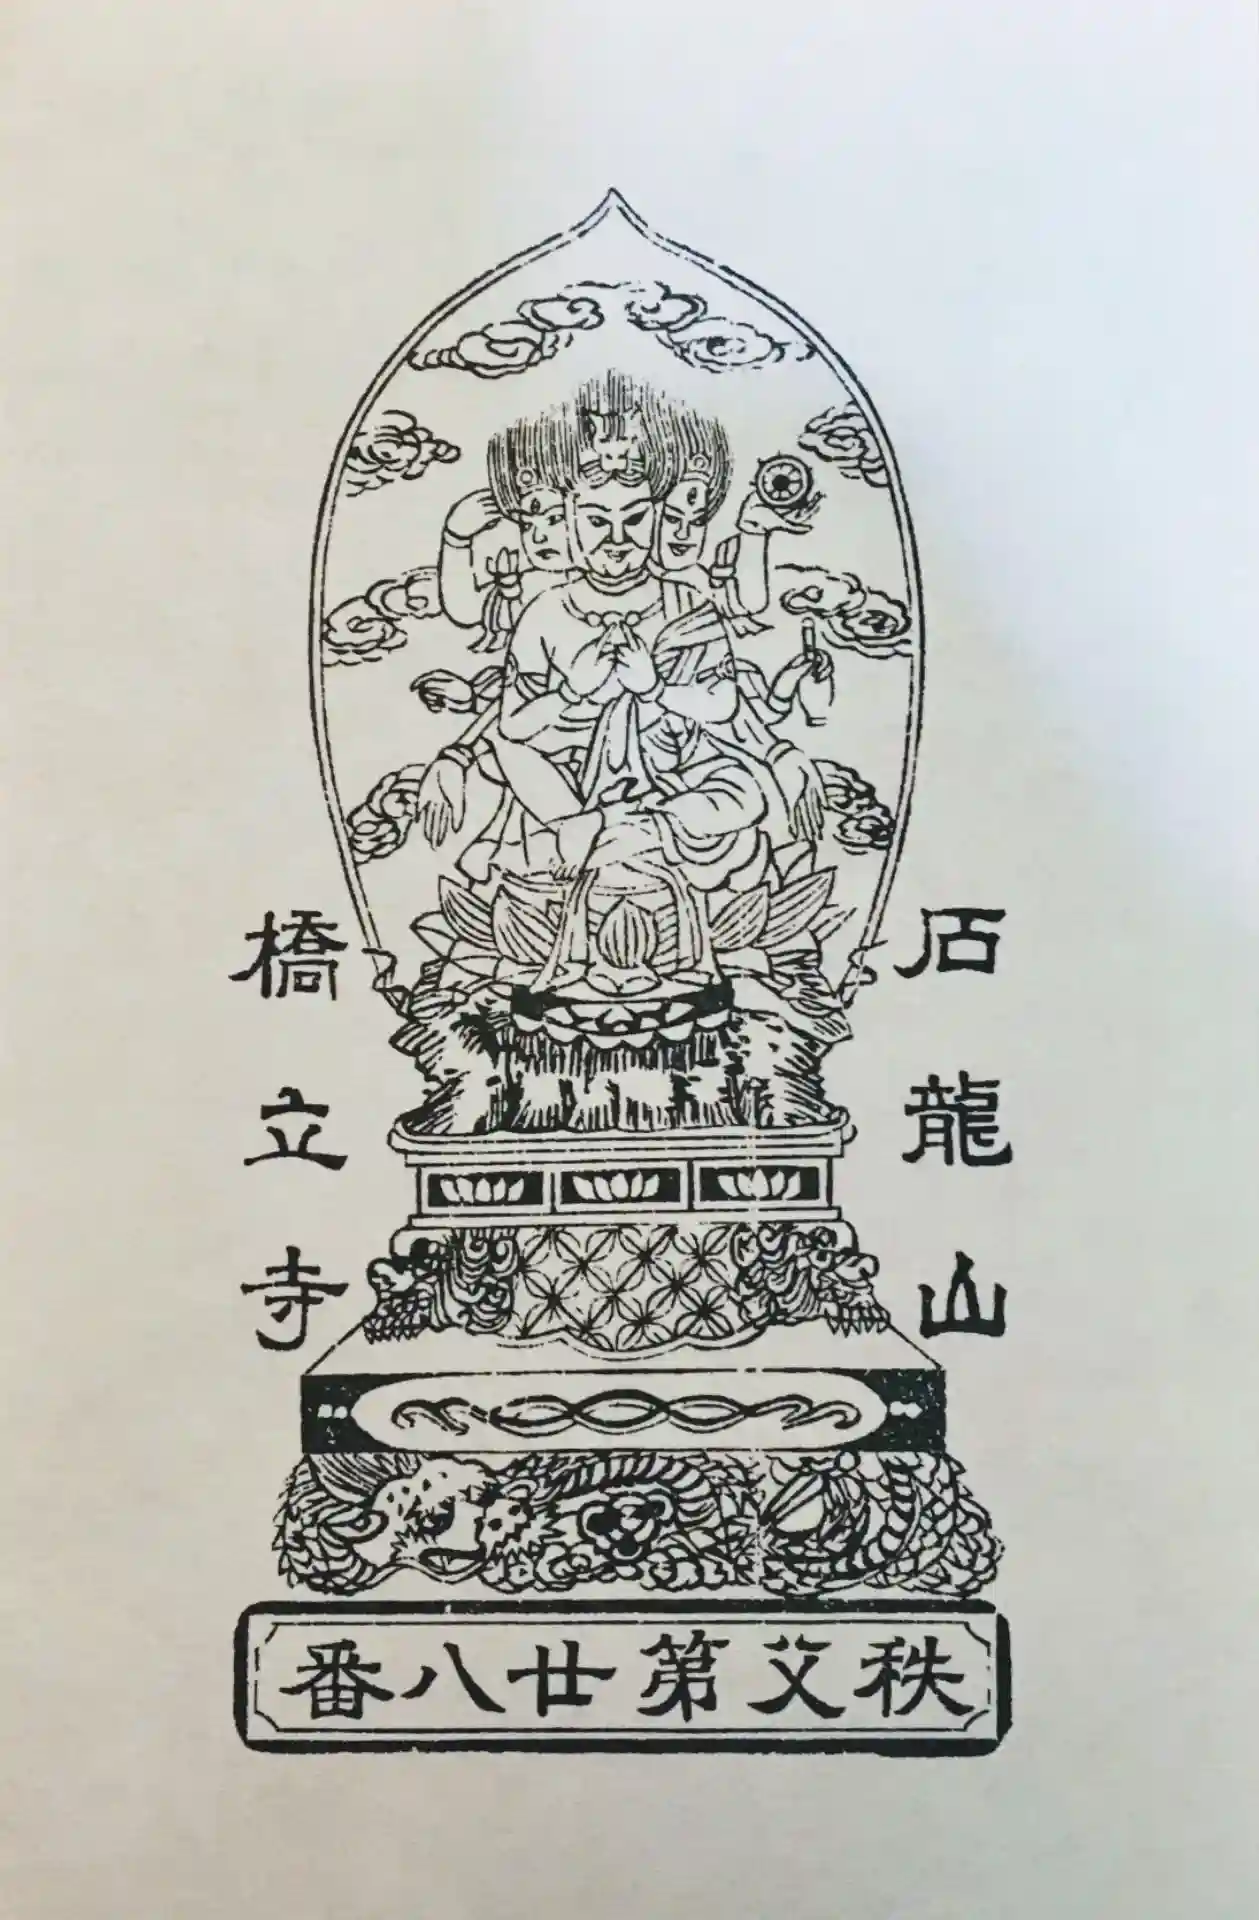 石龍山
橋立寺
秩父第廿八番